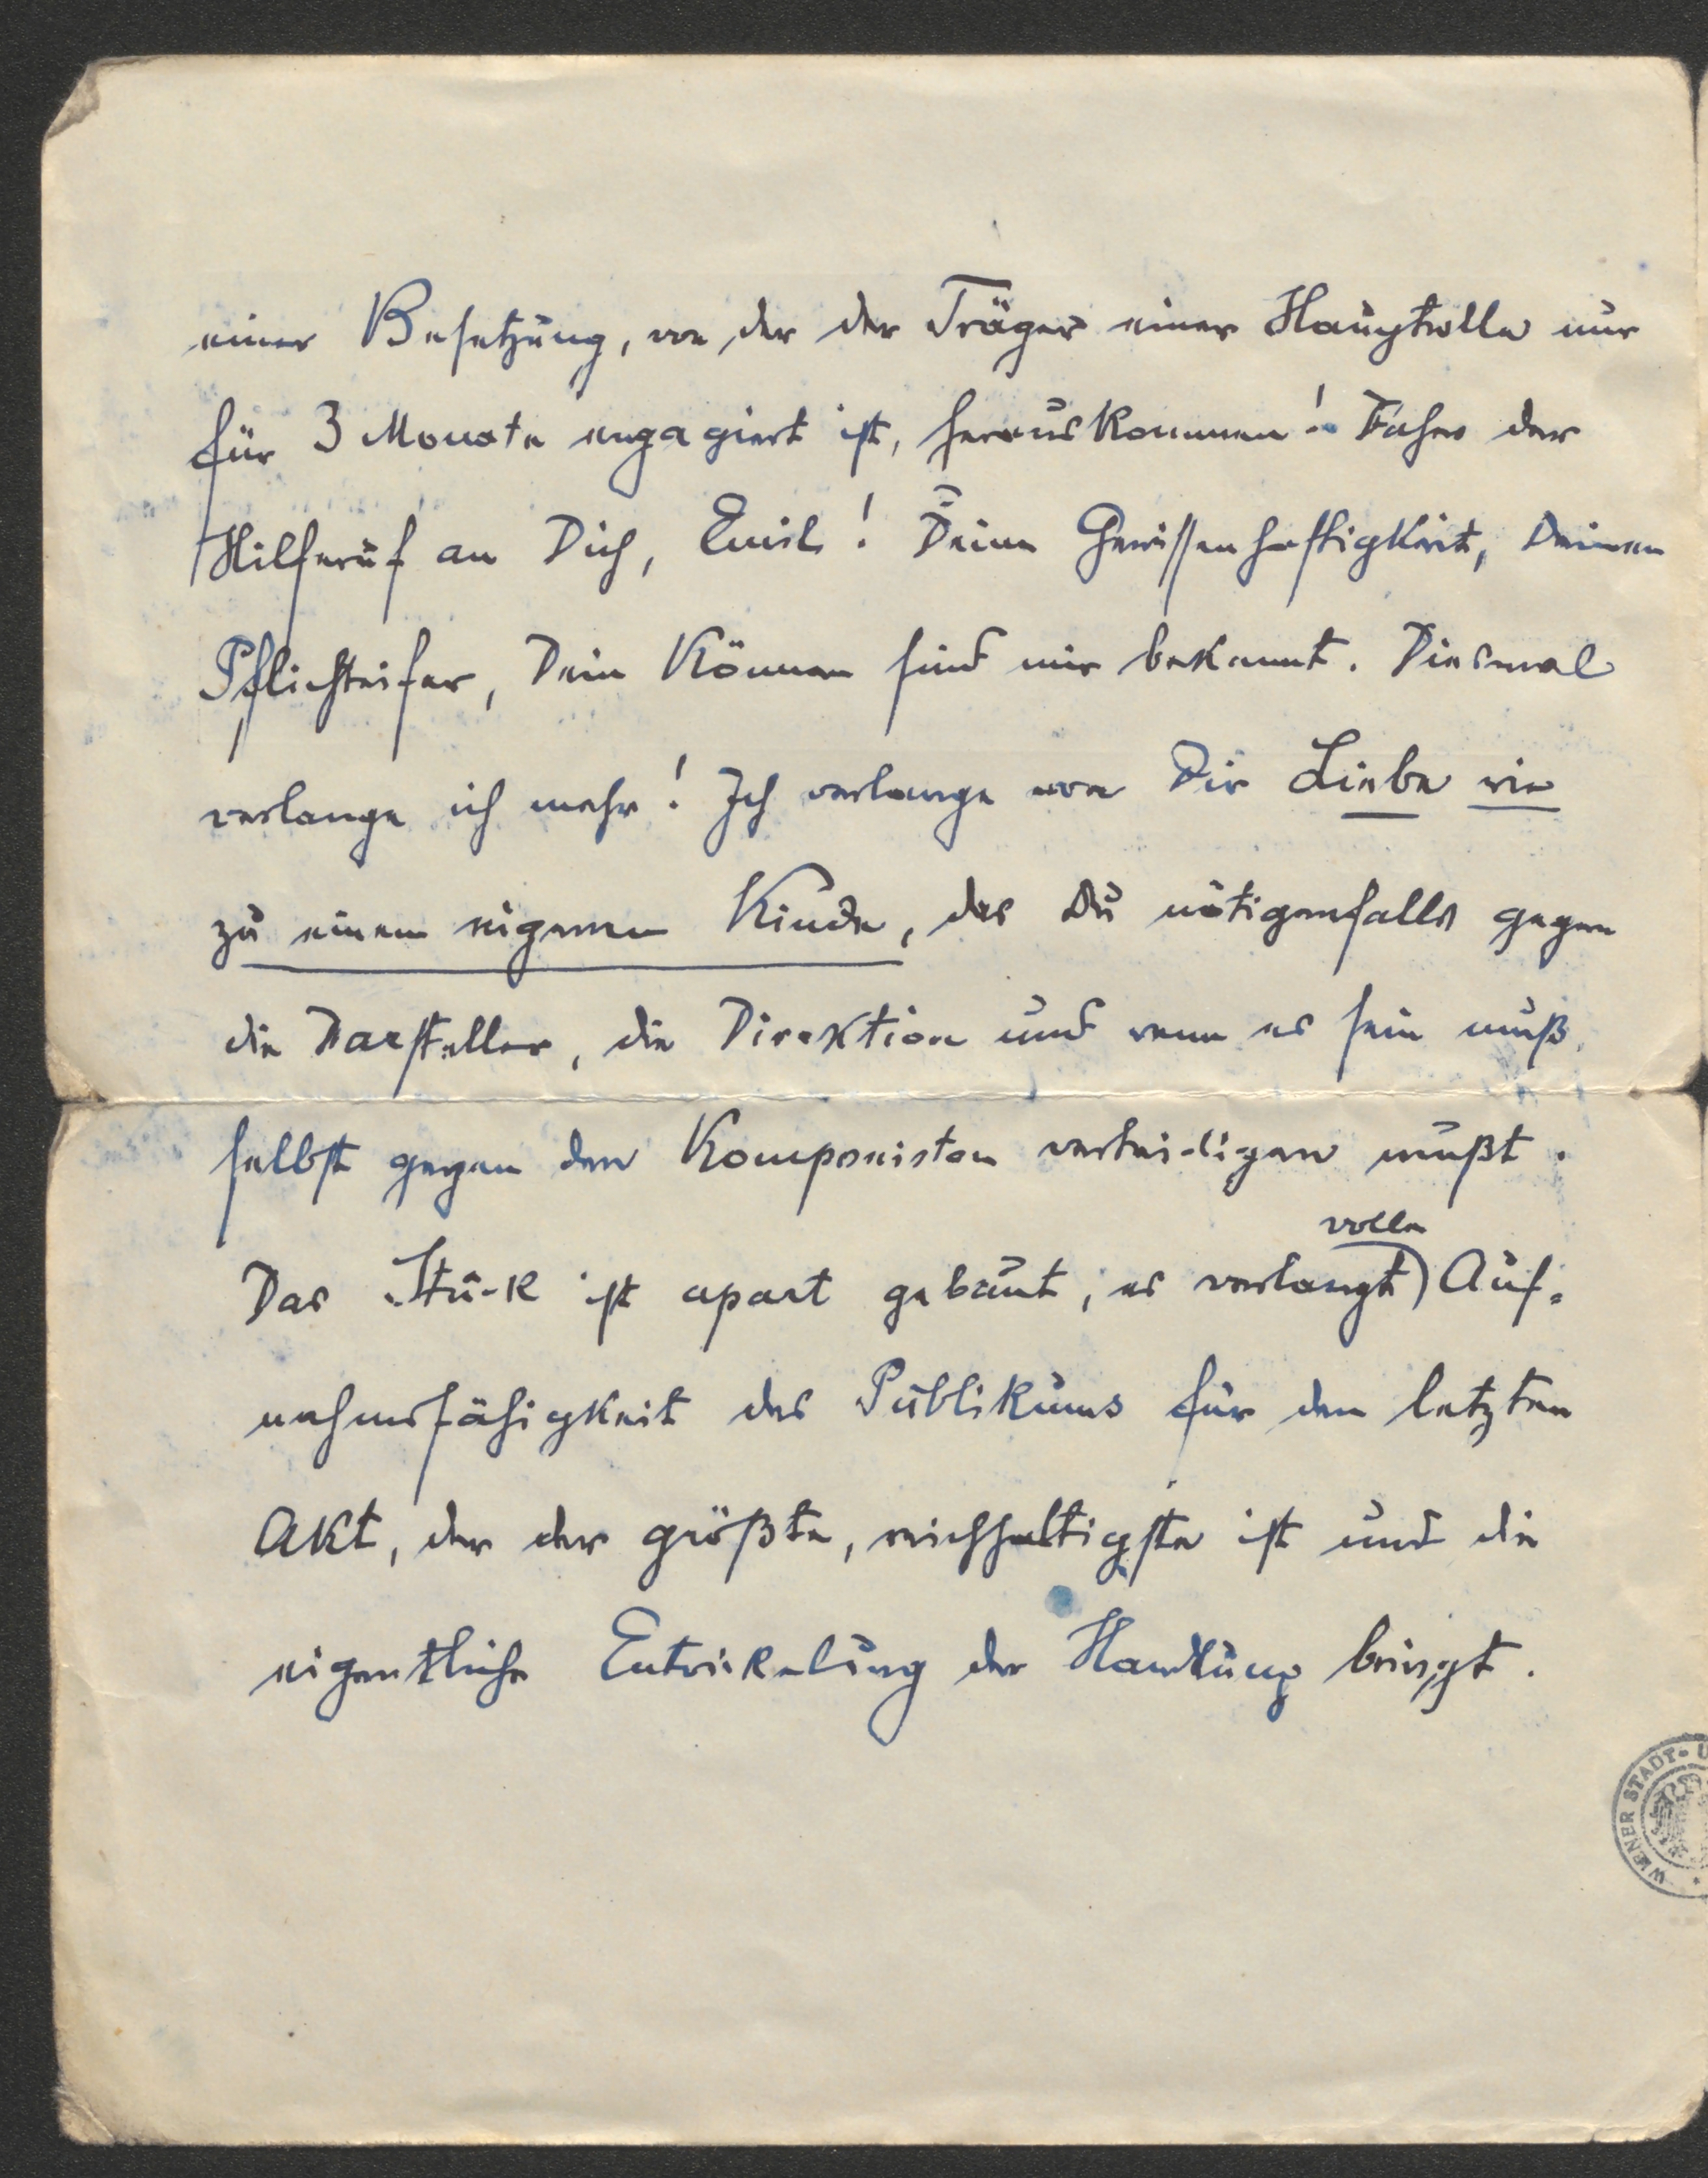 einer Besetzung, von der der Träger einer Hauptrolle nur
für 3 Monate engagiert ist, herauskommen! Daher der
Hilferuf an Dich, Emil! Deine Gewissenhaftigkeit, Deinen
Pflichteifer, Dein Können sind mir bekannt. Diesmal
verlange ich mehr! Ich verlange von Dir Liebe wie
zu einem eigenen Kinde, das Du nötigenfalls gegen
die Darsteller, die Direktion und wenn es sein muß,
selbst gegen den Komponisten verteidigen mußt.
volle
Das Stück ist apart gebaut, es verlangt Auf-
nahmsfähigkeit des Publikums für den letzten
Akt, der der größte, reichhaltigste ist und die
eigentliche Entwickelung der Handlung bringt.
WIENER STADT- U